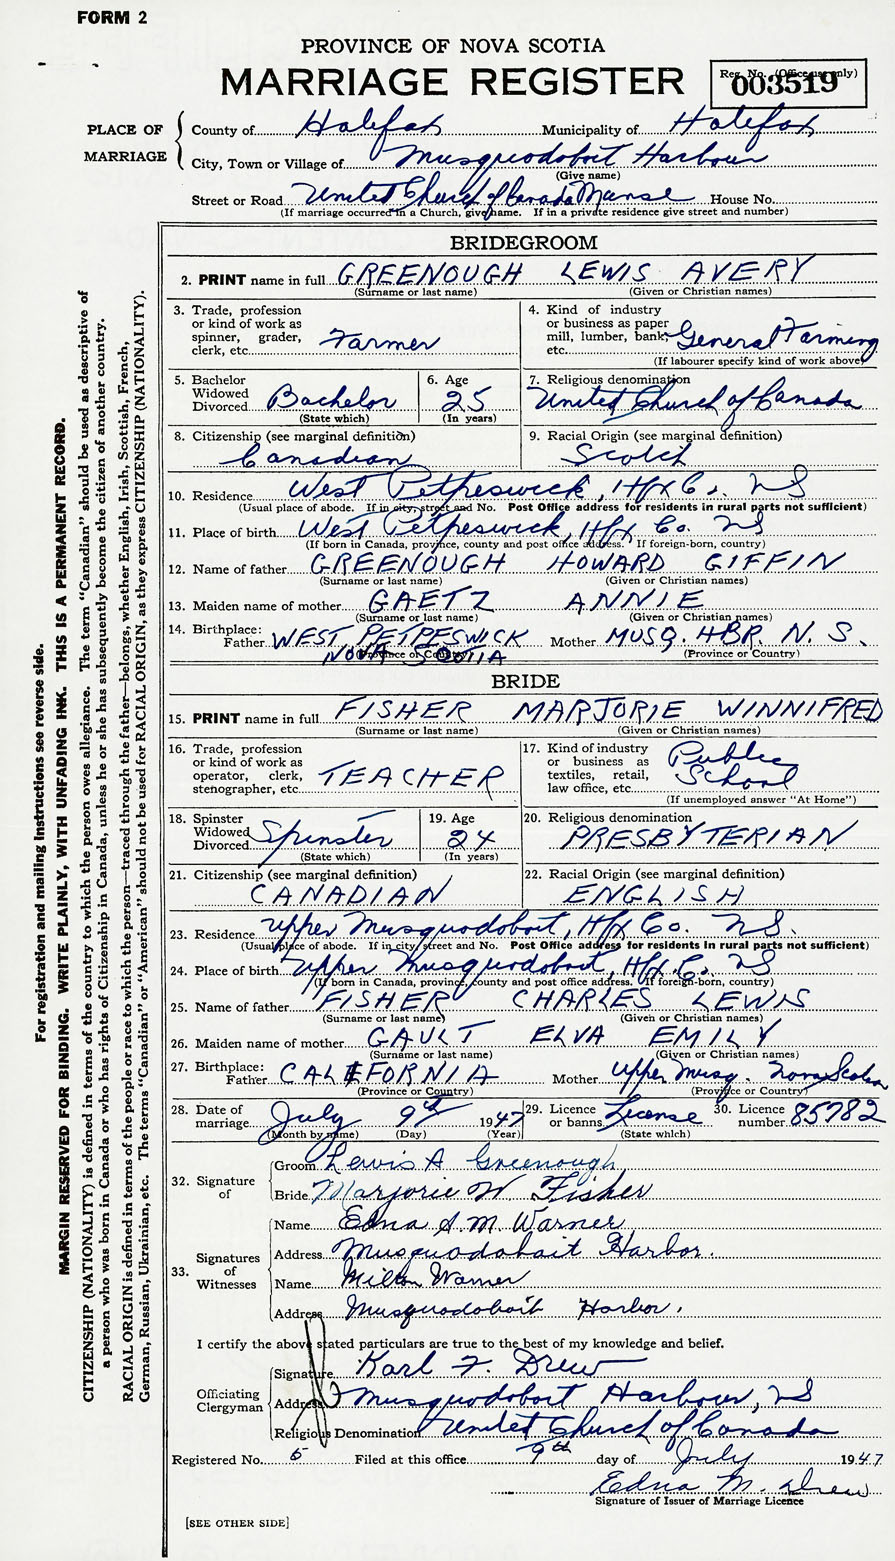 FORM 2
PROVINCE OF NOVA SCOTIA
MARRIAGE REGISTER
Reg. No. (Office use only)
003519
PLACE OF MARRIAGE
County of Halifax Municipality of Halifax
City, Town or Village of Musquodoboit Harbour
(Give name)
Street or Road United Church of Canada Manse House No.
(If marriage occurred in a Church, give name. If in a private residence give street and number)
BRIDEGROOM
2. PRINT name in full GREENOUGH LEWIS AVERY
(Surname or last name) (Given or Christian names)
3. Trade, profession or kind of work as spinner, grader, clerk, etc. Farmer
4. Kind of industry or business as paper mill, lumber, bank, etc. General Farming
(If labourer specify kind of work above)
5. Bachelor Widowed Divorced Bachelor
(State which)
6. Age 25
(In years)
7. Religious denomination
United Church of Canada
8. Citizenship (see marginal definition)
Canadian
9. Racial Origin (see marginal definition)
Scotch
10. Residence West Petpeswick, Hfx Co. NS
(Usual place of abode. If in city, street and No. Post Office address for residents in rural parts not sufficient)
11. Place of birth West Petpeswick, Hfx Co. NS
(If born in Canada, province, county and post office address. If foreign-born, country)
12. Name of father GREENOUGH HOWARD GIFFIN
(Surname or last name) (Given or Christian names)
13. Maiden name of mother GAETZ ANNIE
(Surname or last name) (Given or Christian names)
14. Birthplace: Father WEST PETPESWICK NOVA SCOTIA Mother MUSQ. HBR. N. S.
(Province or Country) (Province or Country)
BRIDE
15. PRINT name in full FISHER MARJORIE WINNIFRED
(Surname or last name) (Given or Christian names)
16. Trade, profession or kind of work as operator, clerk, stenographer, etc. TEACHER
17. Kind of industry or business as textiles, retail, law office, etc. Public School
(If unemployed answer "At Home")
18. Spinster Widowed Divorced Spinster
(State which)
19. Age 24
(In years)
20. Religious denomination
PRESBYTERIAN
21. Citizenship (see marginal definition)
CANADIAN
22. Racial Origin (see marginal definition)
ENGLISH
23. Residence Upper Musquodoboit, Hfx Co. NS.
(Usual place of abode. If in city, street and No. Post Office address for residents in rural parts not sufficient)
24. Place of birth Upper Musquodoboit, Hfx. Co. NS
(If born in Canada, province, county and post office address. If foreign-born, country)
25. Name of father FISHER CHARLES LEWIS
(Surname or last name) (Given or Christian names)
26. Maiden name of mother GAULT ELVA EMILY
(Surname or last name) (Given or Christian names)
27. Birthplace: Father CALIFORNIA Mother Upper Musq. Nova Scotia
(Province or Country) (Province or Country)
28. Date of marriage. July 9th 1947
(Month by name) (Day) (Year)
29. Licence or banns License
(State which)
30. Licence number 85782
32. Signature of
Groom Lewis A Greenough
Bride Marjorie W Fisher
33. Signatures of Witnesses
Name Edna S. M. Warner
Address Musquodoboit Harbor.
Name Milton Warner
Address Musquodoboit Harbor.
I certify the above stated particulars are true to the best of my knowledge and belief.
Officiating Clergyman
Signature Karl F. Drew
Address Musquodoboit Harbour, NS
Religious Denomination United Church of Canada
Registered No. 5 Filed at this office 9th day of July 1947
Edna M. Drew
Signature of Issuer of Marriage Licence
[SEE OTHER SIDE]
For registration and mailing instructions see reverse side.
MARGIN RESERVED FOR BINDING. WRITE PLAINLY, WITH UNFADING INK. THIS IS A PERMANENT RECORD.
CITIZENSHIP (NATIONALITY) is defined in terms of the country to which the person owes allegiance. The term "Canadian" should be used as descriptive of
a person who was born in Canada or who has rights of Citizenship in Canada, unless he or she has subsequently become the citizen of another country.
RACIAL ORIGIN is defined in terms of the people or race to which the person—traced through the father—belongs, whether English, Irish, Scottish, French,
German, Russian, Ukrainian, etc. The terms "Canadian" or "American" should not be used for RACIAL ORIGIN, as they express CITIZENSHIP (NATIONALITY).